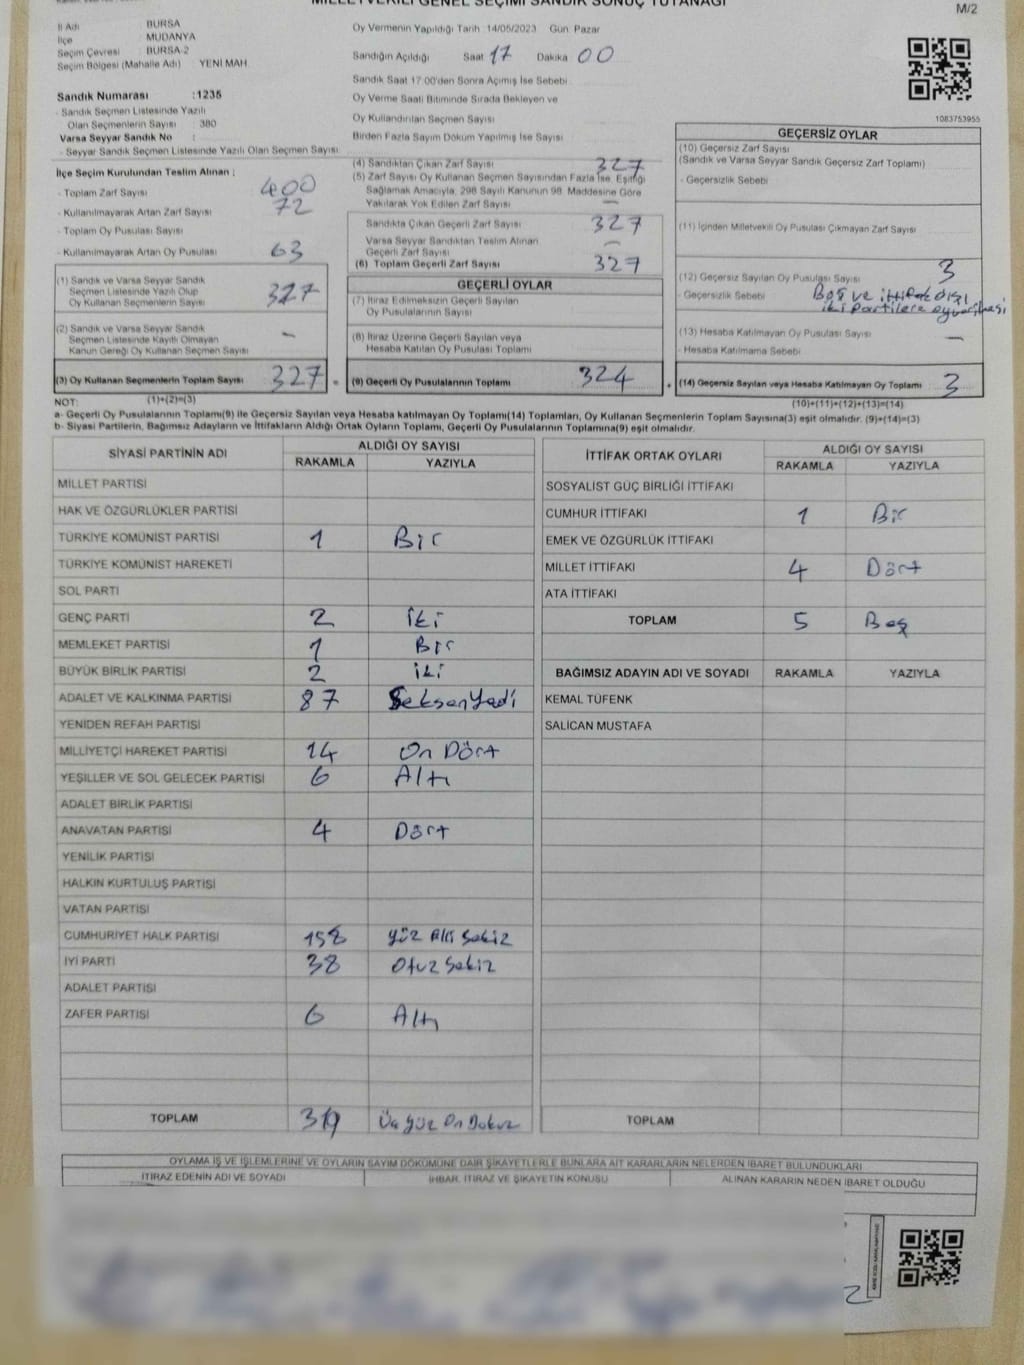 MİLLETVEKİLİ GENEL SEÇİMİ SANDIK SONUÇ TUTANAĞI
M/2
İl Adı BURSA
İlçe MUDANYA
Seçim Çevresi : BURSA-2
Seçim Bölgesi (Mahalle Adı) YENİ MAH.
Sandık Numarası :1235
- Sandık Seçmen Listesinde Yazılı
Olan Seçmenlerin Sayısı : 380
Varsa Seyyar Sandık No :
- Seyyar Sandık Seçmen Listesinde Yazılı Olan Seçmen Sayısı
İlçe Seçim Kurulundan Teslim Alınan ;
- Toplam Zarf Sayısı 400
- Kullanılmayarak Artan Zarf Sayısı 72
- Toplam Oy Pusulası Sayısı
- Kullanılmayarak Artan Oy Pusulası 63
(1) Sandık ve Varsa Seyyar Sandık
Seçmen Listesinde Yazılı Olup
Oy Kullanan Seçmenlerin Sayısı 327
(2) Sandık ve Varsa Seyyar Sandık
Seçmen Listesinde Kayıtlı Olmayan
Kanun Gereği Oy Kullanan Seçmen Sayısı –
(3) Oy Kullanan Seçmenlerin Toplam Sayısı 327
(1)+(2)=(3)
Oy Vermenin Yapıldığı Tarih :14/05/2023 Gün: Pazar
Sandığın Açıldığı Saat 17 Dakika 00
Sandık Saat 17:00'den Sonra Açımış İse Sebebi
Oy Verme Saati Bitiminde Sırada Bekleyen ve
Oy Kullandırılan Seçmen Sayısı
Birden Fazla Sayım Döküm Yapılmış İse Sayısı
(4) Sandıktan Çıkan Zarf Sayısı 327
(5) Zarf Sayısı Oy Kullanan Seçmen Sayısından Fazla İse, Eşitliği
Sağlamak Amacıyla, 298 Sayılı Kanunun 98. Maddesine Göre
Yakılarak Yok Edilen Zarf Sayısı –
Sandıkta Çıkan Geçerli Zarf Sayısı 327
Varsa Seyyar Sandıktan Teslim Alınan
Geçerli Zarf Sayısı –
(6) Toplam Geçerli Zarf Sayısı 327
GEÇERLİ OYLAR
(7) İtiraz Edilmeksizin Geçerli Sayılan
Oy Pusulalarının Sayısı
(8) İtiraz Üzerine Geçerli Sayılan veya
Hesaba Katılan Oy Pusulası Toplamı
(9) Geçerli Oy Pusulalarının Toplamı 324
1083753955
GEÇERSİZ OYLAR
(10) Geçersiz Zarf Sayısı
(Sandık ve Varsa Seyyar Sandık Geçersiz Zarf Toplamı)
- Geçersizlik Sebebi
(11) İçinden Milletvekili Oy Pusulası Çıkmayan Zarf Sayısı
(12) Geçersiz Sayılan Oy Pusulası Sayısı 3
- Geçersizlik Sebebi Boş ve ittifak dışı
iki partilere oy verilmesi
(13) Hesaba Katılmayan Oy Pusulası Sayısı –
- Hesaba Katılmama Sebebi
(14) Geçersiz Sayılan veya Hesaba Katılmayan Oy Toplamı 3
(10)+(11)+(12)+(13)=(14)
NOT:
a- Geçerli Oy Pusulalarının Toplamı(9) ile Geçersiz Sayılan veya Hesaba katılmayan Oy Toplamı(14) Toplamları, Oy Kullanan Seçmenlerin Toplam Sayısına(3) eşit olmalıdır. (9)+(14)=(3)
b- Siyasi Partilerin, Bağımsız Adayların ve İttifakların Aldığı Ortak Oyların Toplamı, Geçerli Oy Pusulalarının Toplamına(9) eşit olmalıdır.
SİYASİ PARTİNİN ADI ALDIĞI OY SAYISI
RAKAMLA YAZIYLA
MİLLET PARTİSİ
HAK VE ÖZGÜRLÜKLER PARTİSİ
TÜRKİYE KOMÜNİST PARTİSİ 1 Bir
TÜRKİYE KOMÜNİST HAREKETİ
SOL PARTİ
GENÇ PARTİ 2 İki
MEMLEKET PARTİSİ 1 Bir
BÜYÜK BİRLİK PARTİSİ 2 iki
ADALET VE KALKINMA PARTİSİ 87 SeksenYedi
YENİDEN REFAH PARTİSİ
MİLLİYETÇİ HAREKET PARTİSİ 14 On Dört
YEŞİLLER VE SOL GELECEK PARTİSİ 6 Altı
ADALET BİRLİK PARTİSİ
ANAVATAN PARTİSİ 4 Dört
YENİLİK PARTİSİ
HALKIN KURTULUŞ PARTİSİ
VATAN PARTİSİ
CUMHURİYET HALK PARTİSİ 158 Yüz Elli Sekiz
İYİ PARTİ 38 Otuz Sekiz
ADALET PARTİSİ
ZAFER PARTİSİ 6 Altı
TOPLAM 319 Üç Yüz On Dokuz
İTTİFAK ORTAK OYLARI ALDIĞI OY SAYISI
RAKAMLA YAZIYLA
SOSYALİST GÜÇ BİRLİĞİ İTTİFAKI
CUMHUR İTTİFAKI 1 Bir
EMEK VE ÖZGÜRLÜK İTTİFAKI
MİLLET İTTİFAKI 4 Dört
ATA İTTİFAKI
TOPLAM 5 Beş
BAĞIMSIZ ADAYIN ADI VE SOYADI RAKAMLA YAZIYLA
KEMAL TÜFENK
SALİCAN MUSTAFA
TOPLAM
OYLAMA İŞ VE İŞLEMLERİNE VE OYLARIN SAYIM DÖKÜMÜNE DAİR ŞİKAYETLERLE BUNLARA AİT KARARLARIN NELERDEN İBARET BULUNDUKLARI
İTİRAZ EDENİN ADI VE SOYADI İHBAR, İTİRAZ VE ŞİKAYETİN KONUSU ALINAN KARARIN NEDEN İBARET OLDUĞU